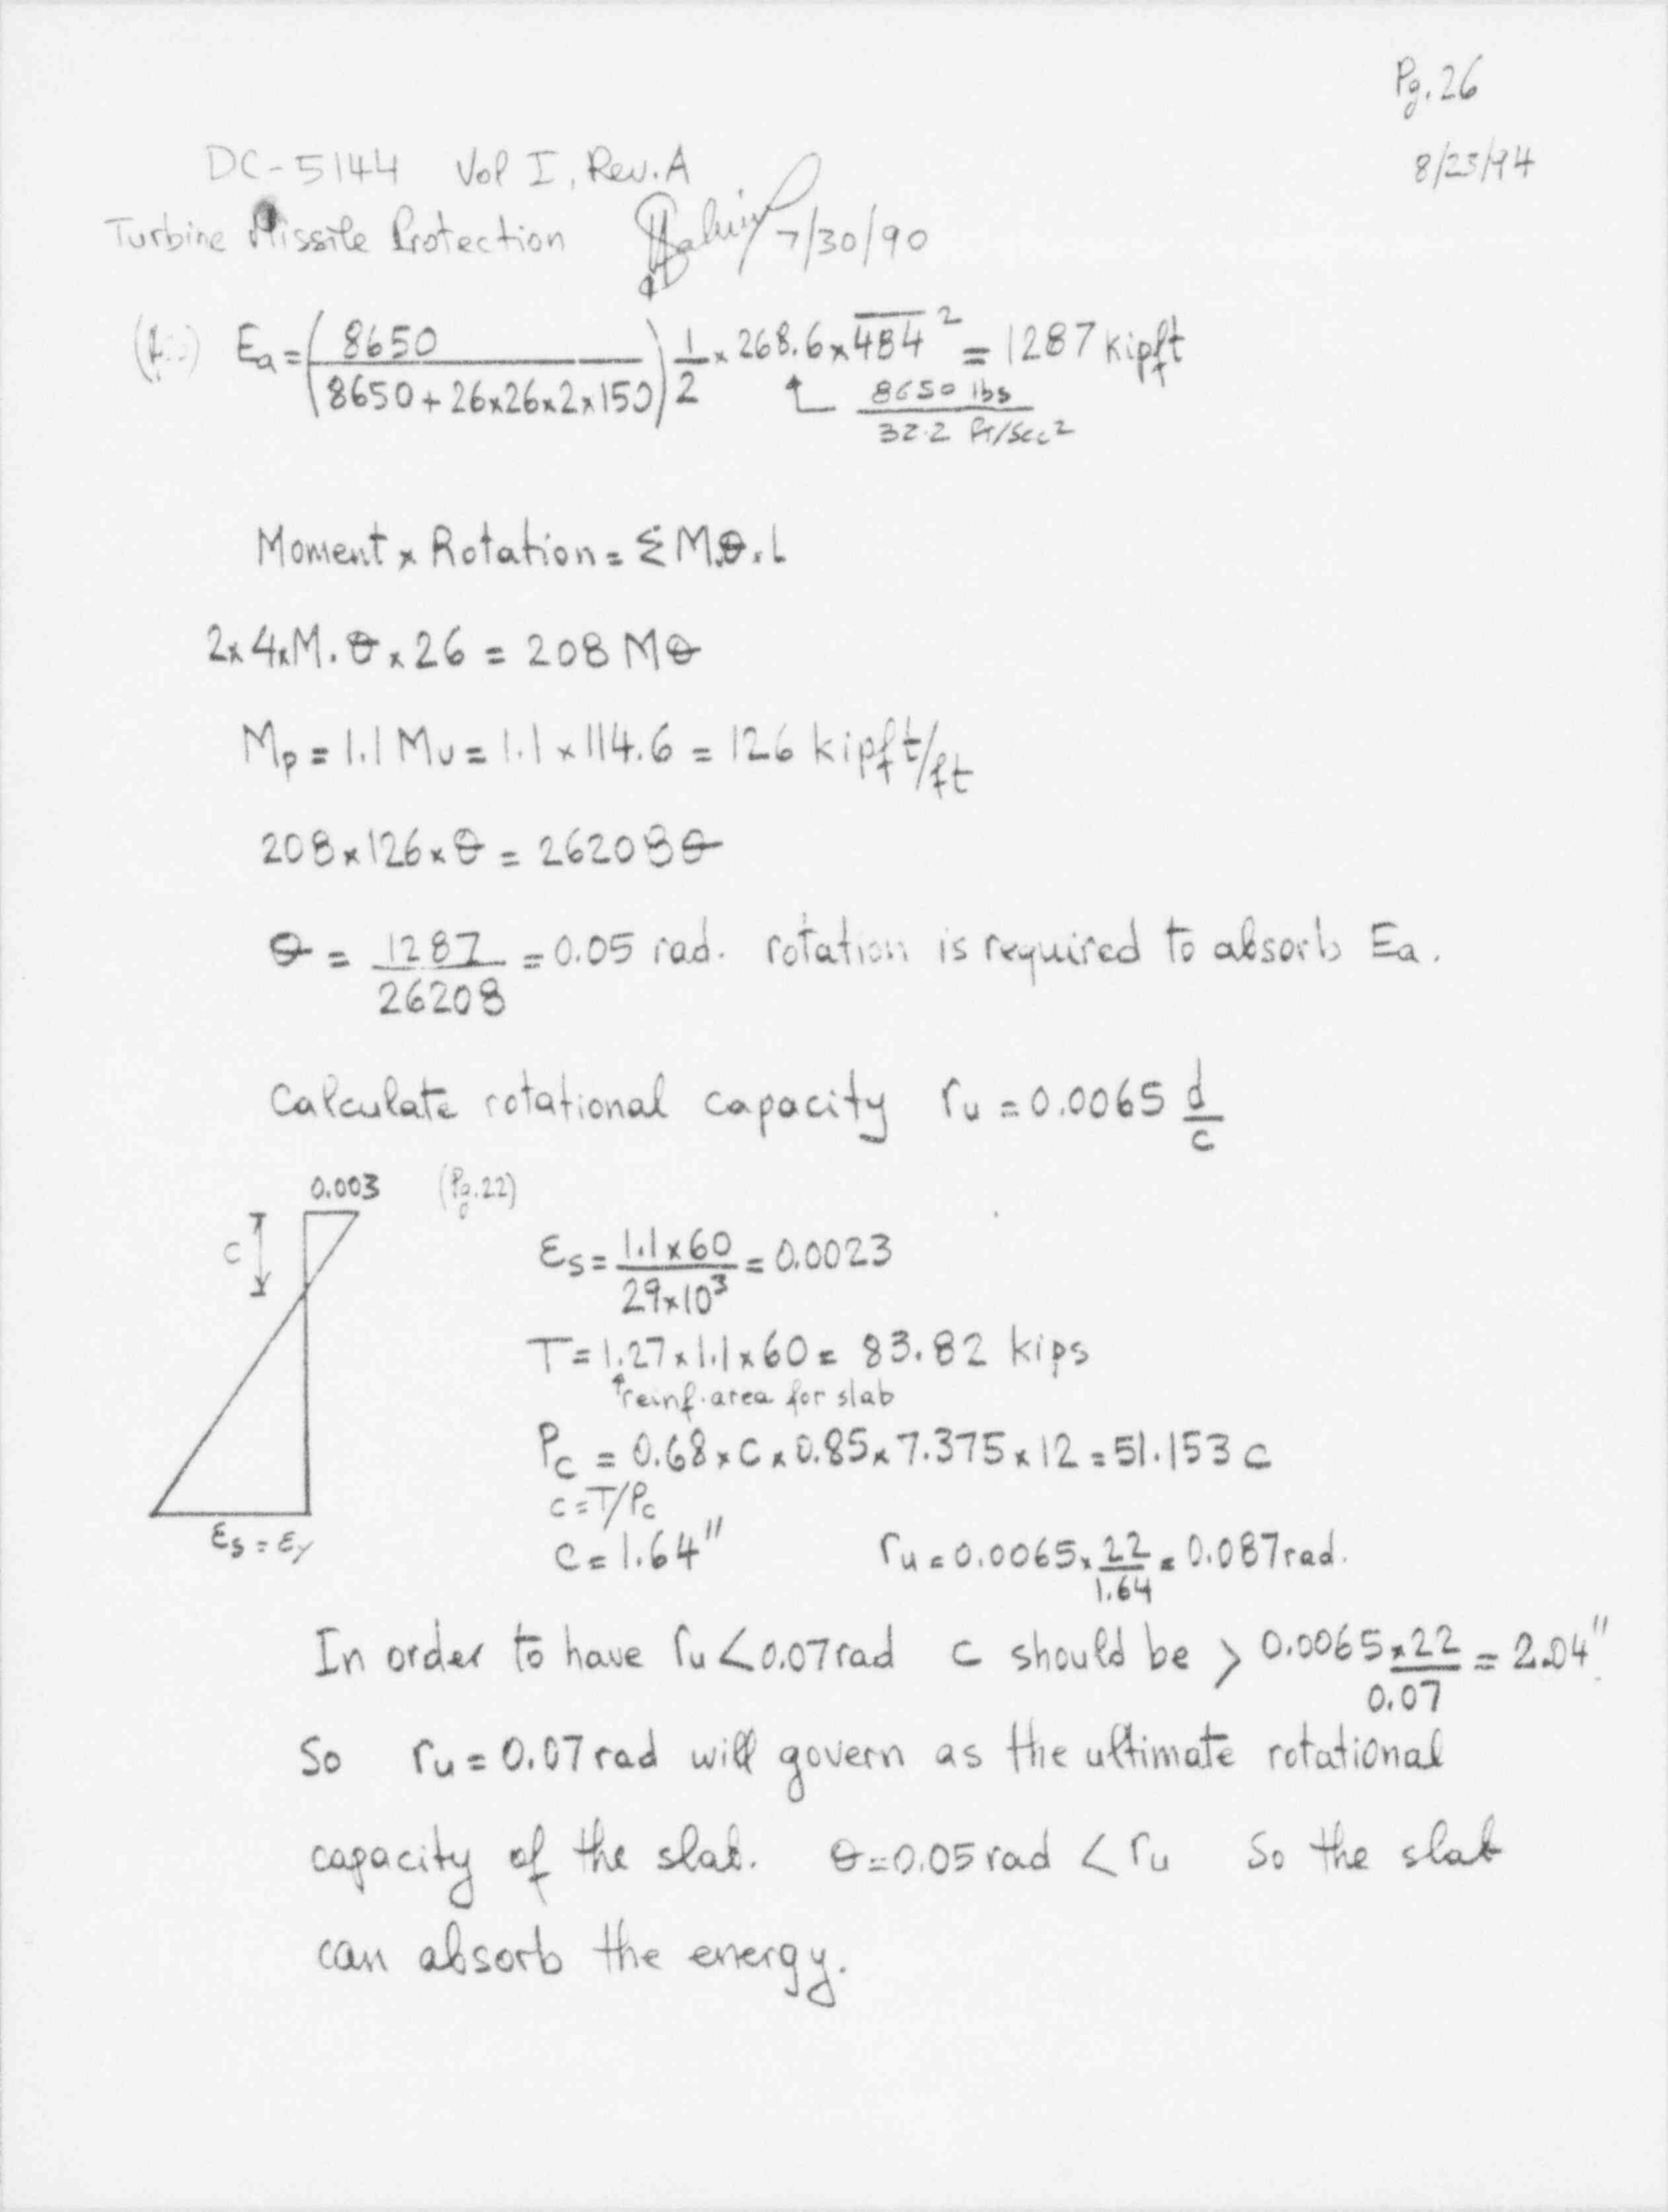 Pg. 26
8/23/94
DC-5144 Vol I, Rev. A
Turbine Missile Protection 7/30/90
Ea = (8650 / (8650 + 26x26x2x150)) 1/2 x 268.6 x 484² = 1287 kipft
↑ 8650 lbs / 32.2 ft/sec²
Moment x Rotation = Σ M.θ.L
2x4xM.θx26 = 208 Mθ
Mp = 1.1 Mu = 1.1 x 114.6 = 126 kipft/ft
208x126xθ = 26208θ
θ = 1287 / 26208 = 0.05 rad. rotation is required to absorb Ea.
Calculate rotational capacity ru = 0.0065 d/c
0.003 (Pg. 22)
c
εs = 1.1x60 / 29x10³ = 0.0023
T = 1.27x1.1x60 = 83.82 kips
↑reinf. area for slab
Pc = 0.68xCx0.85x7.375x12 = 51.153 c
c = T/Pc
εs = εy
c = 1.64" ru = 0.0065x 22/1.64 = 0.087 rad.
In order to have ru < 0.07 rad c should be > 0.0065x22 / 0.07 = 2.04".
So ru = 0.07 rad will govern as the ultimate rotational
capacity of the slab. θ=0.05 rad < ru So the slab
can absorb the energy.